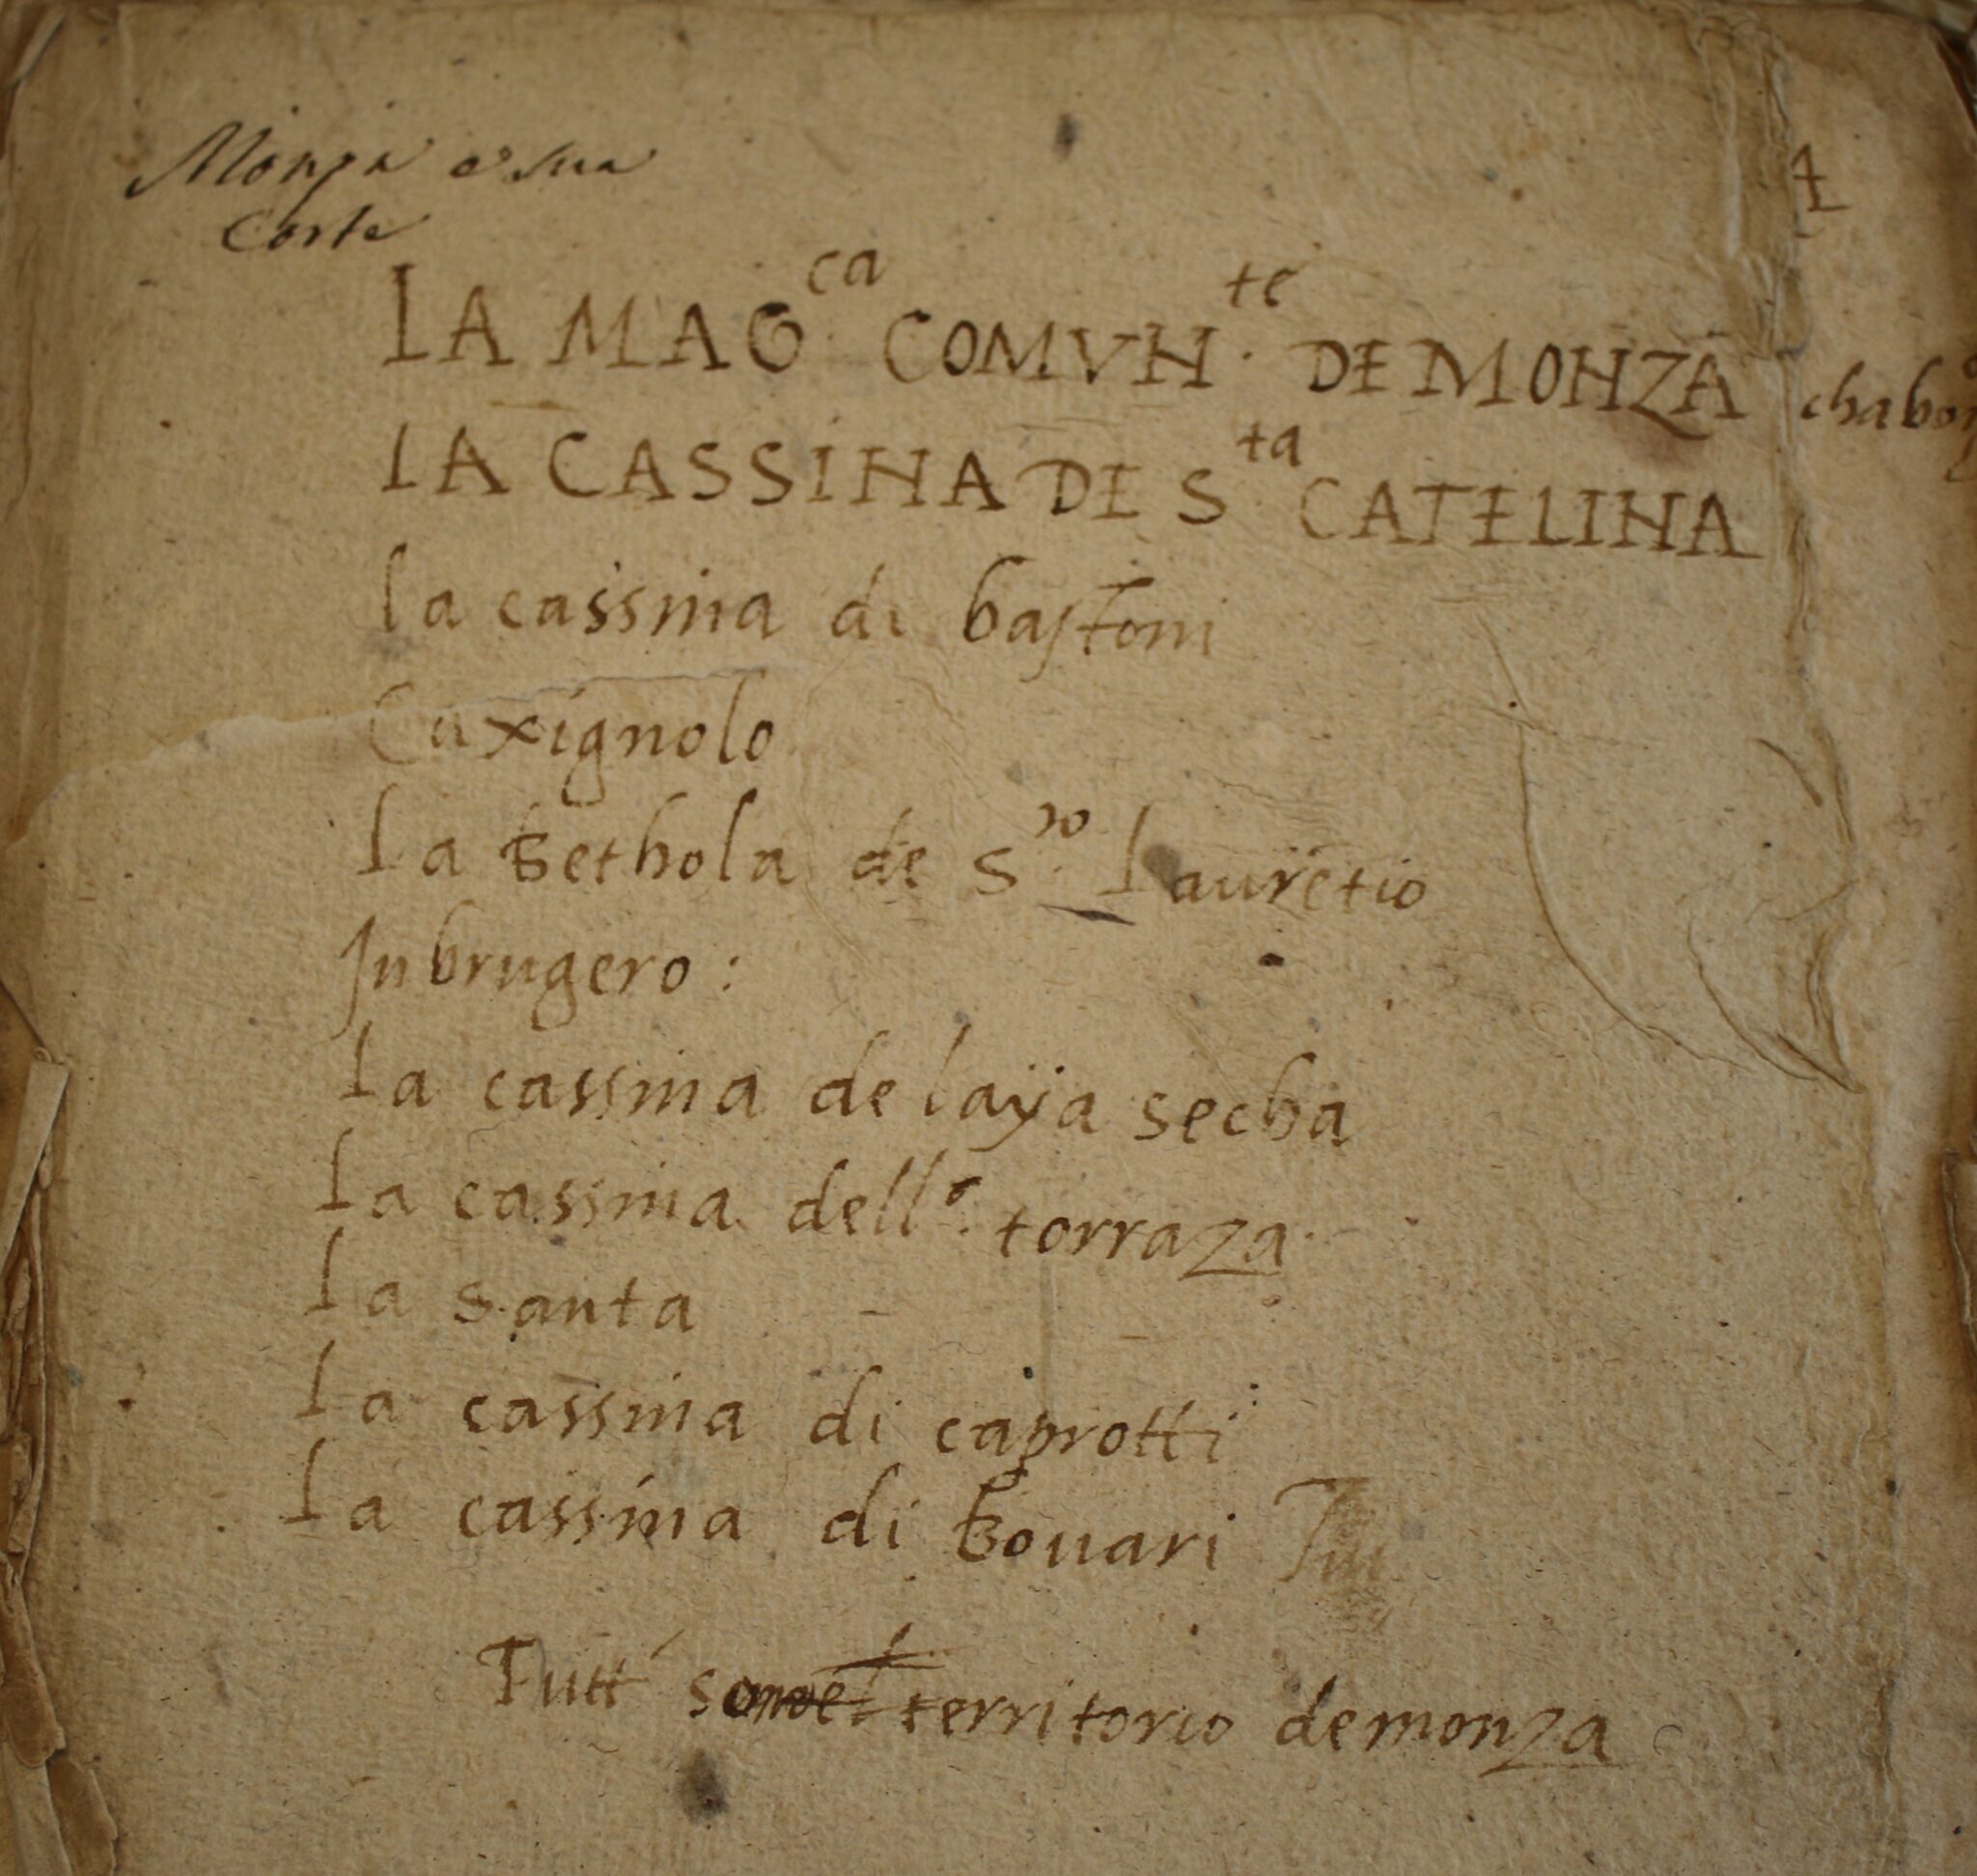 Monza e sua
Corte
1
LA MAG^ca COMVN^te DE MONZA
LA CASSINA DI S^ta CATELINA
la cassina di bastoni
Caxignolo
La Bethola de S^to Lauretio
In brugero:
La cassina de layja secha
La cassina dell^a torraza
La santa
La cassina di caprotti
La cassina di Bouari
Tutt' territorio de monza